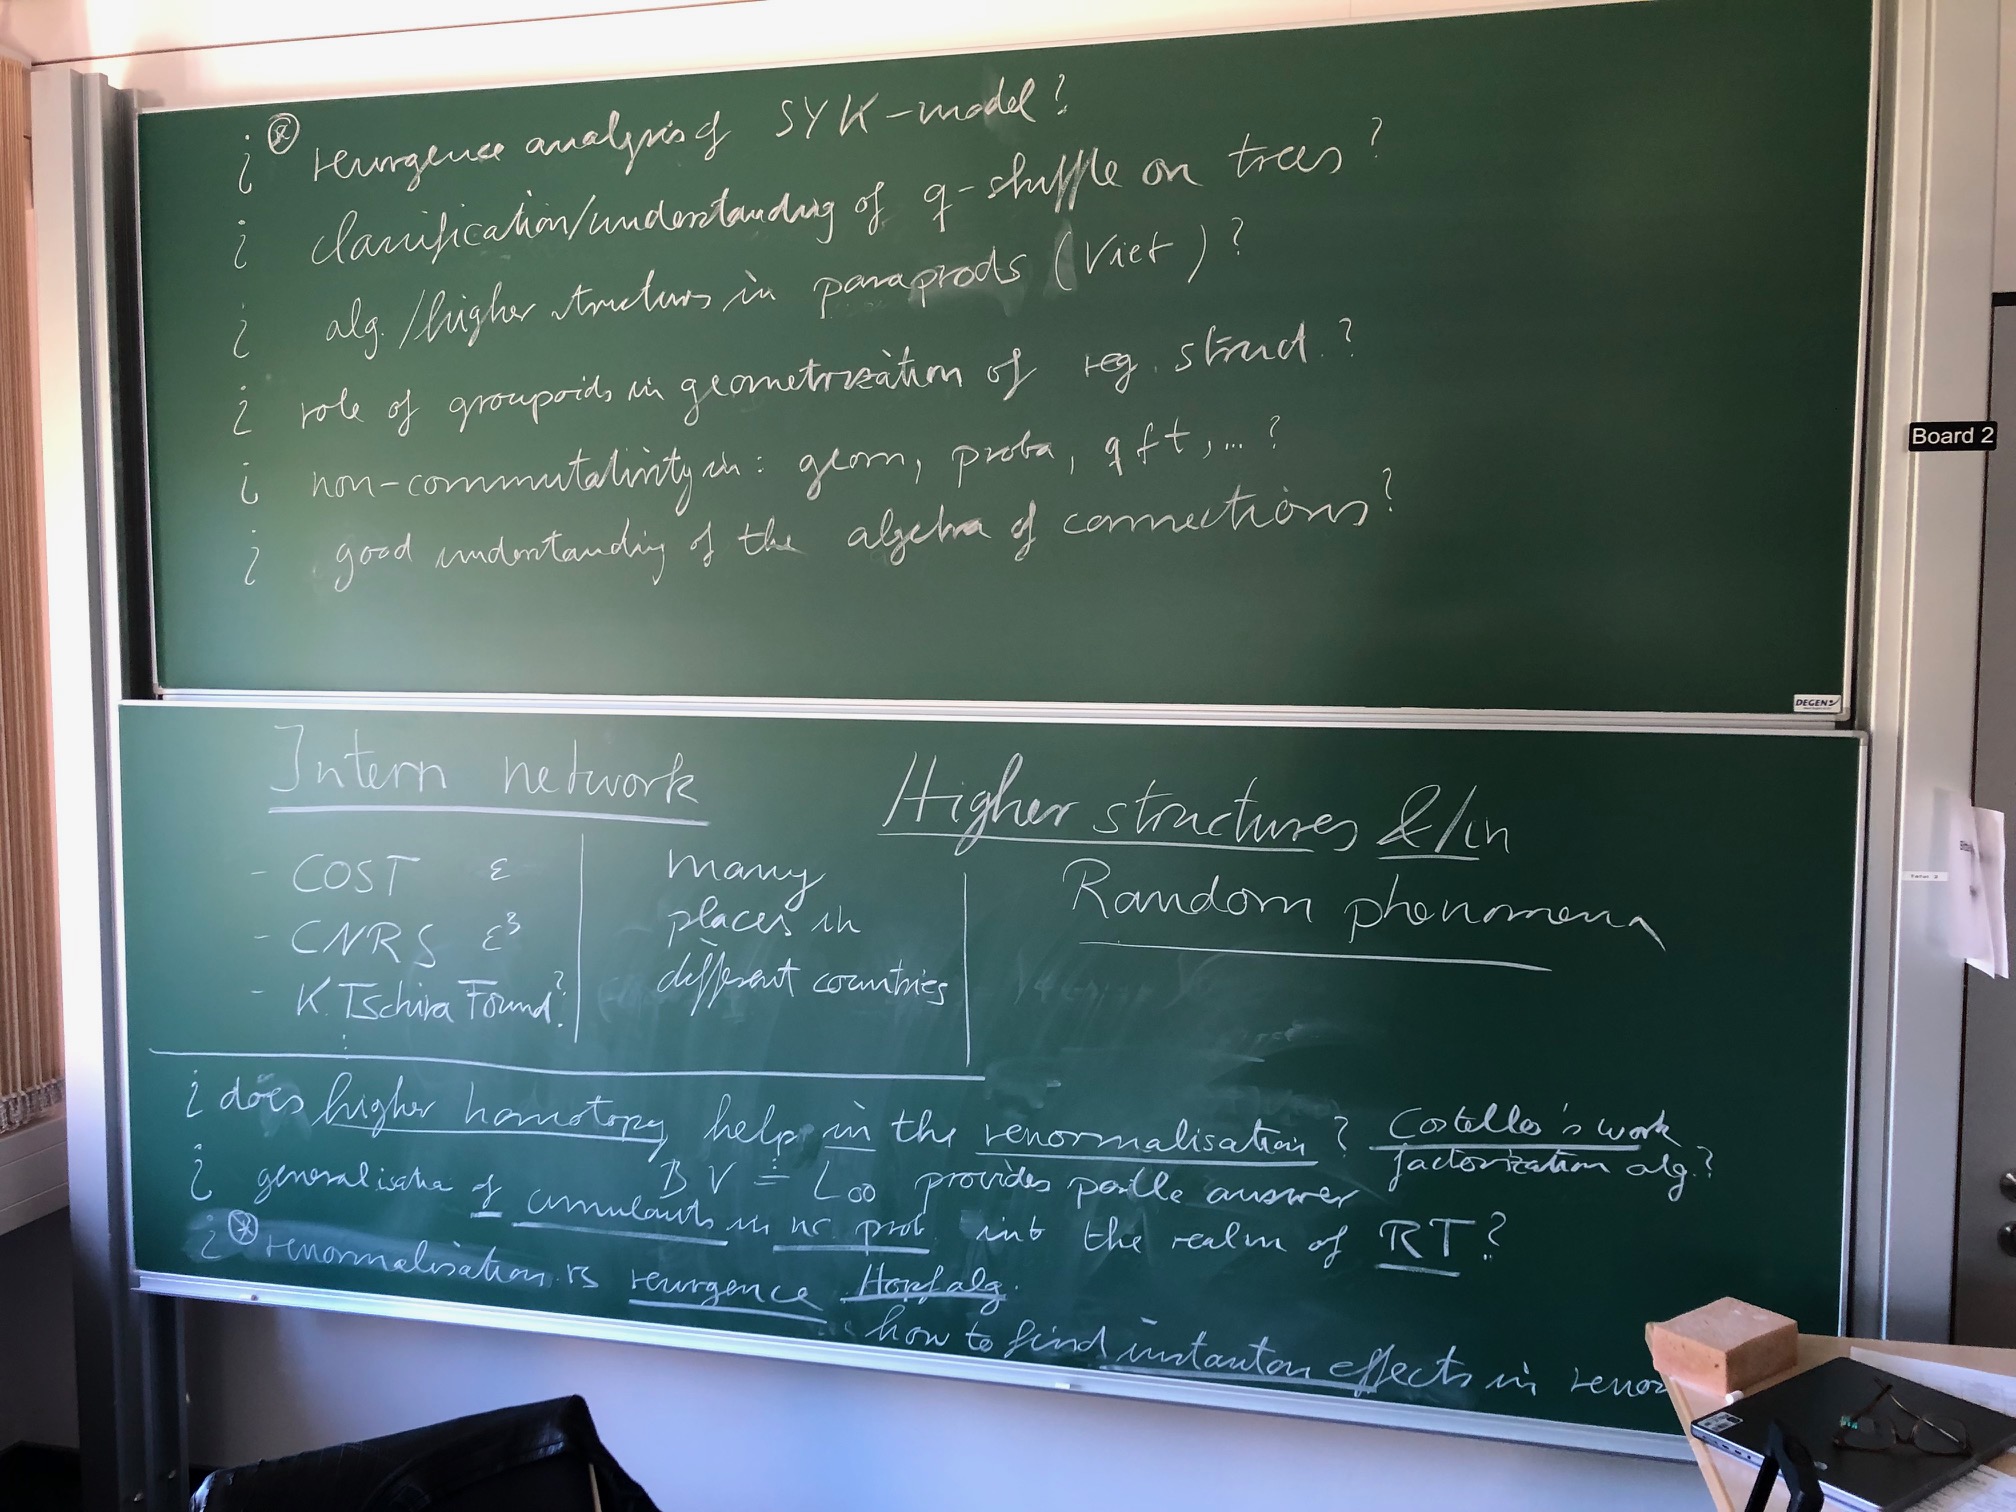 ¿ ⊛ resurgence analysis of SYK-model?
¿ classification/understanding of q-shuffle on trees?
¿ alg./higher structures in paraprods (Viet)?
¿ role of groupoids in geometrization of reg. struct.?
¿ non-commutativity in: geom, proba, qft, ...?
¿ good understanding of the algebra of connections?
Board 2
DEGEN
Intern network
Higher structures &/in
Random phenomena
- COST ε
- CNRS ε³
- K. Tschira Found?
many
places in
different countries
¿ does higher homotopy help in the renormalisation? Costello's work
factorization alg.?
BV ≐ L∞ provides possible answer
¿ generalisation of cumulants in nc prob. into the realm of RT?
¿ ⊛ renormalisation vs resurgence Hopf alg.
how to find instanton effects in renor